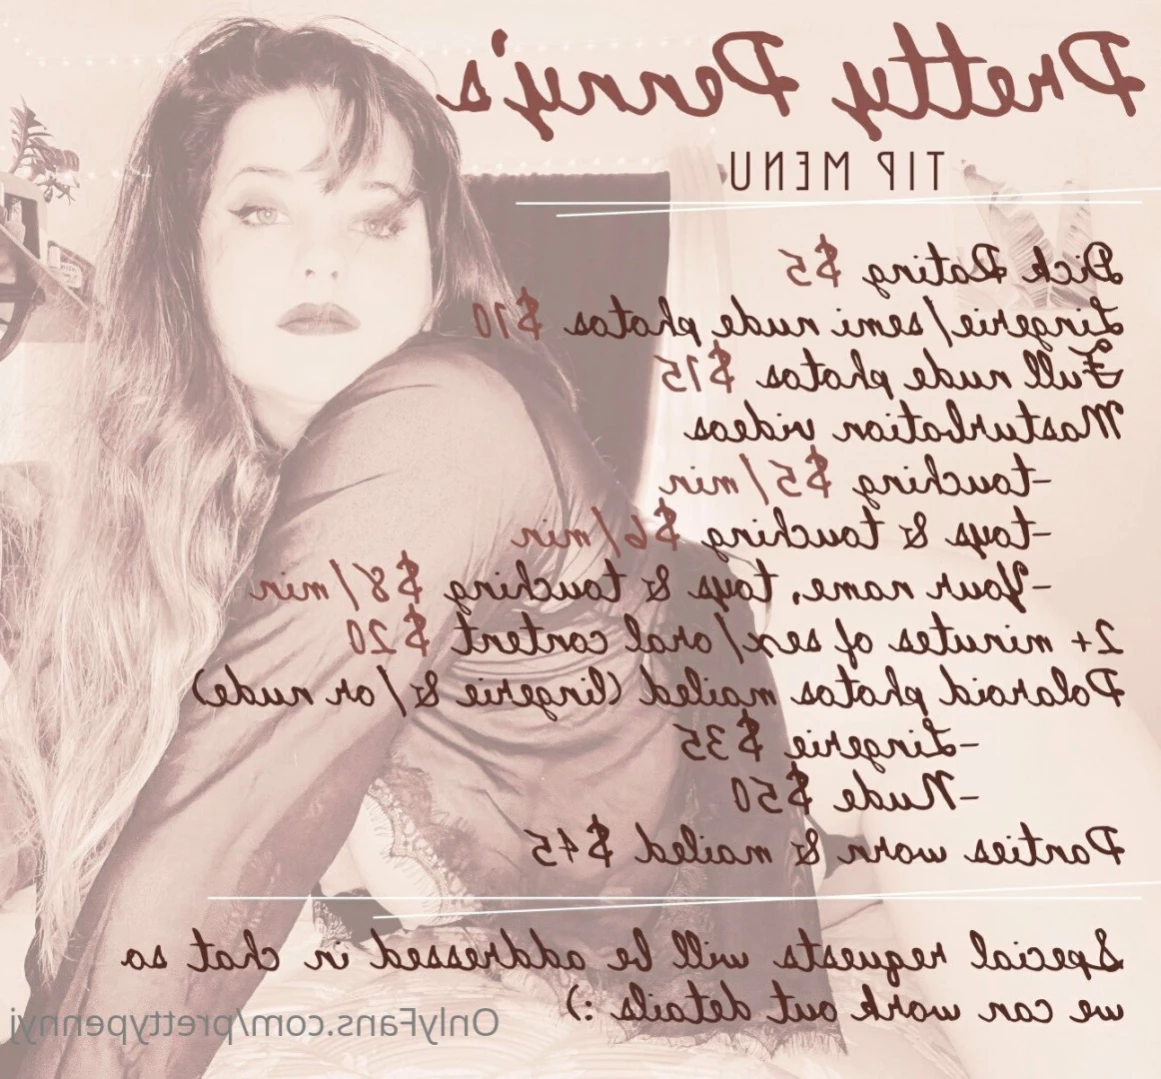 Pretty Penny's
TIP MENU
Dick Rating $5
Lingerie/semi nude photos $10
Full nude photos $15
Masturbation videos
-touching $5/min
-toys & touching $6/min
-Your name, toys & touching $8/min
2+ minutes of sex/oral content $20
Polaroid photos mailed (lingerie &/or nude)
-Lingerie $35
-Nude $50
Panties worn & mailed $45
Special requests will be addressed in chat so
we can work out details :)
OnlyFans.com/prettypennyj